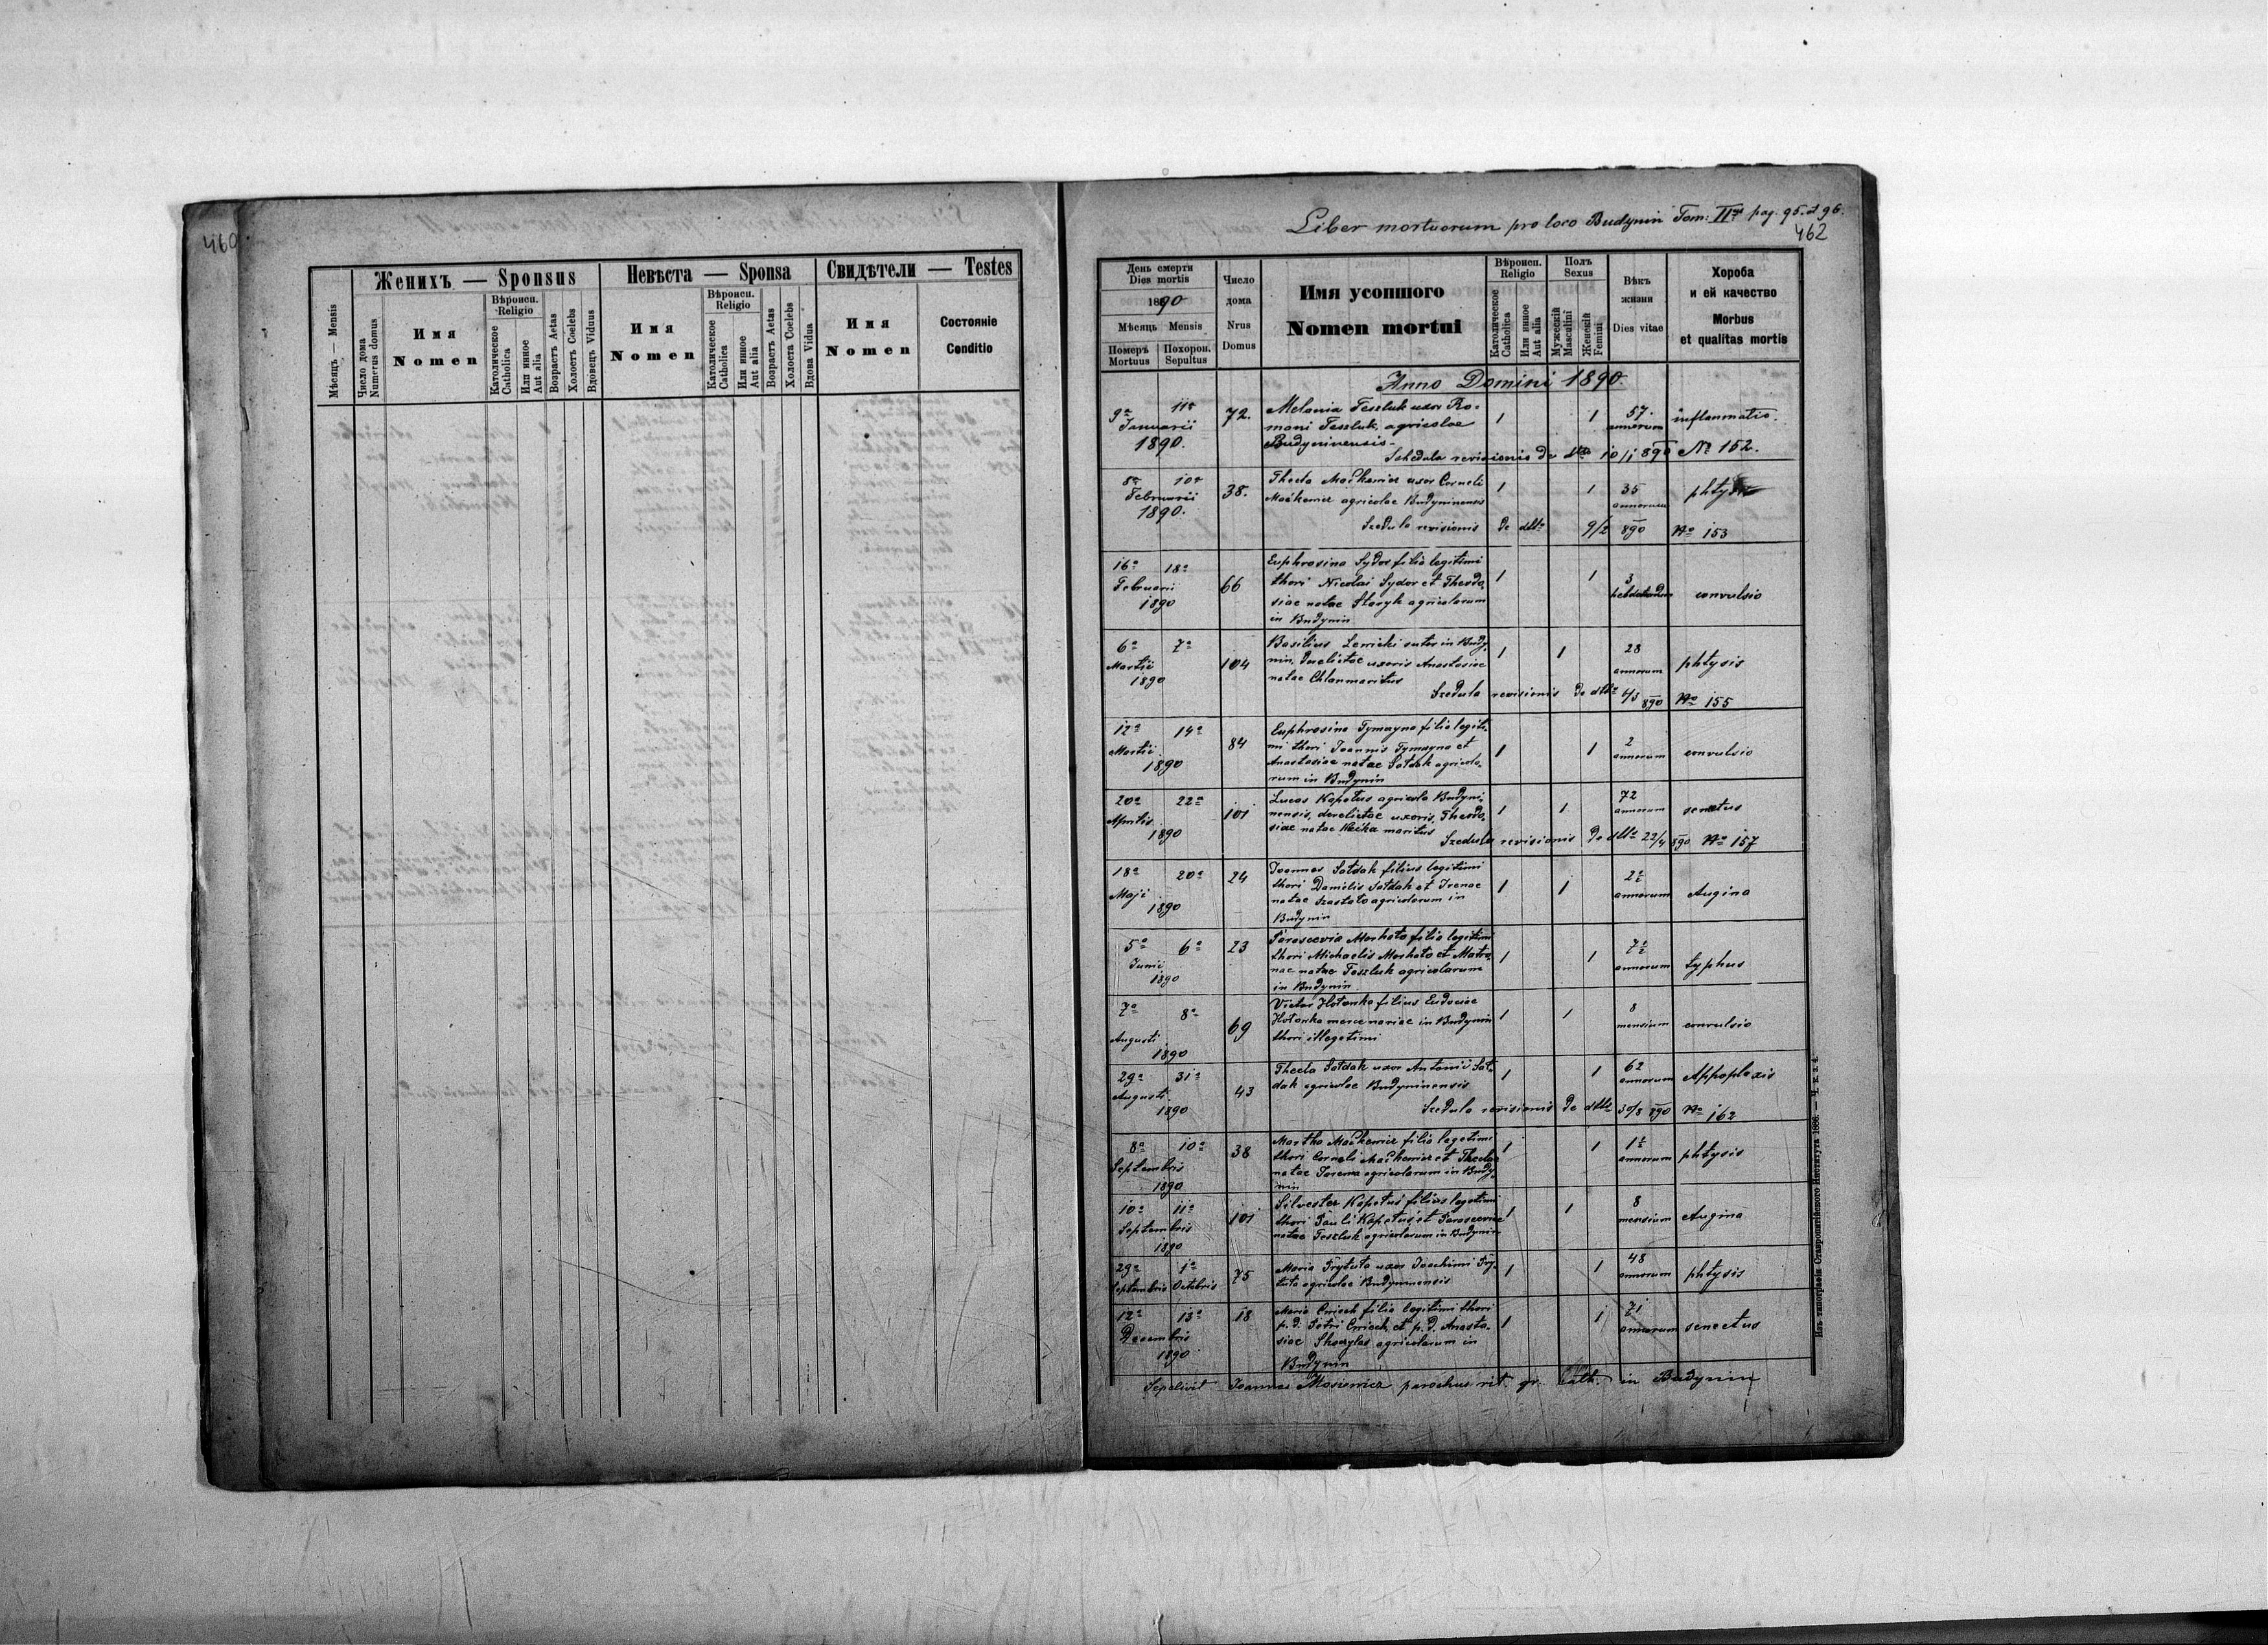 460
Женихъ — Sponsus
Невѣста — Sponsa
Свидѣтели — Testes
Мѣсяцъ — Mensis
Число дома
Numerus domus
Имя
Nomen
Вѣроисп.
Religio
Католическое
Catholica
Или инное
Aut alia
Возрастъ Aetas
Холостъ Coelebs
Вдовецъ Viduus
Имя
Nomen
Вѣроисп.
Religio
Католическое
Catholica
Или инное
Aut alia
Возрастъ Aetas
Холоста Coelebs
Вдова Vidua
Имя
Nomen
Состояніе
Conditio
Liber mortuorum pro loco Budynin Tom: II pag. 95. et 96.
462
День смерти
Dies mortis
1890
Мѣсяць Mensis
Померъ
Mortuus
Похорон.
Sepultus
Число
дома
Nrus
Domus
Имя усопшого
Nomen mortui
Вѣроисп.
Religio
Католическое
Catholica
Или инное
Aut alia
Полъ
Sexus
Мужескій
Masculini
Женскій
Femini
Вѣкъ
жизни
Dies vitae
Хороба
и ей качество
Morbus
et qualitas mortis
Anno Domini 1890.
9a 11a Januarii 1890. 72. Melania Teszluk uxor Ro-
mani Teszluk, agricolae
Budyninensis 1 1 57. annorum inflammatio.
Schedula revisionis de dtto 10/1 890 No 152.
8a 10a Februarii 1890. 38. Thecla Maćkewicz uxor Corneli
Maćkewicz agricolae Budyninensis 1 1 35 annorum
Szedula revisionis de dtto 9/2 890 No 153
16a 18a Februarii 1890 66 Euphrosina Sydor filia legitimi
thori Nicolai Sydor et Theodo-
siae natae Staryk agricolarum
in Budynin 1 1 3 convulsio
6a 7a Martii 1890 104 Basilius Lewicki sutor in Budy-
nin, derelictae uxoris Anastasiae
natae Chlan maritus 1 1 28 annorum phtysis
Szedula revisionis de dtto 4/3 890 No 155
12a 14a Martii 1890 84 Euphrosina Tymczyna filia legiti-
mi thori Joannis Tymczyna et
Anastasiae natae Sołdak agricola-
rum in Budynin 1 1 2 annorum convulsio
20a 22a Aprilis 1890 101 Lucas Kapetus agricola Budyni-
nensis, derelictae uxoris Theodo-
siae natae maritus 1 1 72 annorum senectus
Szedula revisionis de dtto 22/4 890 No 157
18a 20a Maji 1890 24 Joannes Sołdak filius legitimi
thori Danielis Sołdak et Irenae
natae agricolarum in
Budynin 1 1 2 annorum Angina
5a 6a Junii 1890 23 Parascevia Mochato filia legitimi
thori Michaelis Mochato et Matro-
nae natae Teszluk agricolarum
in Budynin 1 1 7 annorum typhus
7a 8a Augusti 1890 69 Victor Hołowka filius Eudociae
Hołowka mercenariae in Budynin
thori illegetimi 1 1 8 mensium convulsio
29a 31a Augusti 1890 43 Thecla Sołdak uxor Antonii Soł-
dak agricolae Budyninensis 1 1 62 annorum Appoplexis
Szedula revisionis de dtto 30/8 890 No 162
8a 10a Septembris 1890 38 Martha Maćkewicz filia legetimi
thori Corneli Maćkewicz et Theclae
natae Jarema agricolarum in Budy-
nin 1 1 annorum phtysis
10a 11a Septembris 1890 101 Silvester Kapetus filius legetimi
thori Pauli Kapetus et Parasceviae
natae Teszluk agricolarum in Budynin 1 1 8 mensium Angina
29a Septembris 1a Octobris 75 Maria Prytuła uxor Joachimi Pry-
tuła agricolae Budyninensis 1 1 48 annorum phtysis
12a 13a Decembris 1890 18 Maria filia legitimi thori
p. d. Petri et p. d. Anasta-
siae agricolarum in
Budynin 1 1 71 annorum senectus
Sepelivit Joannes Mosiewicz parochus rit. gr. Cath. in Budynin
Изъ типографіи Ставропигійского Института 1886.